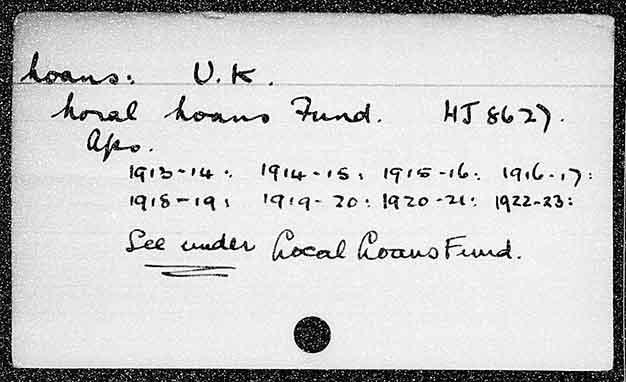 Loans: U.K.
Local Loans Fund. HJ 8627.
Aps.
1913-14: 1914-15: 1915-16: 1916-17:
1918-19: 1919-20: 1920-21: 1922-23:
See under Local Loans Fund.